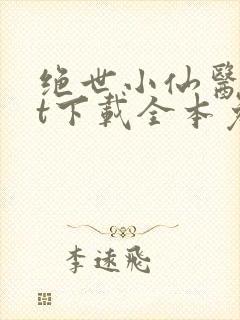 绝世小仙醫
t下載全本
李逺飛